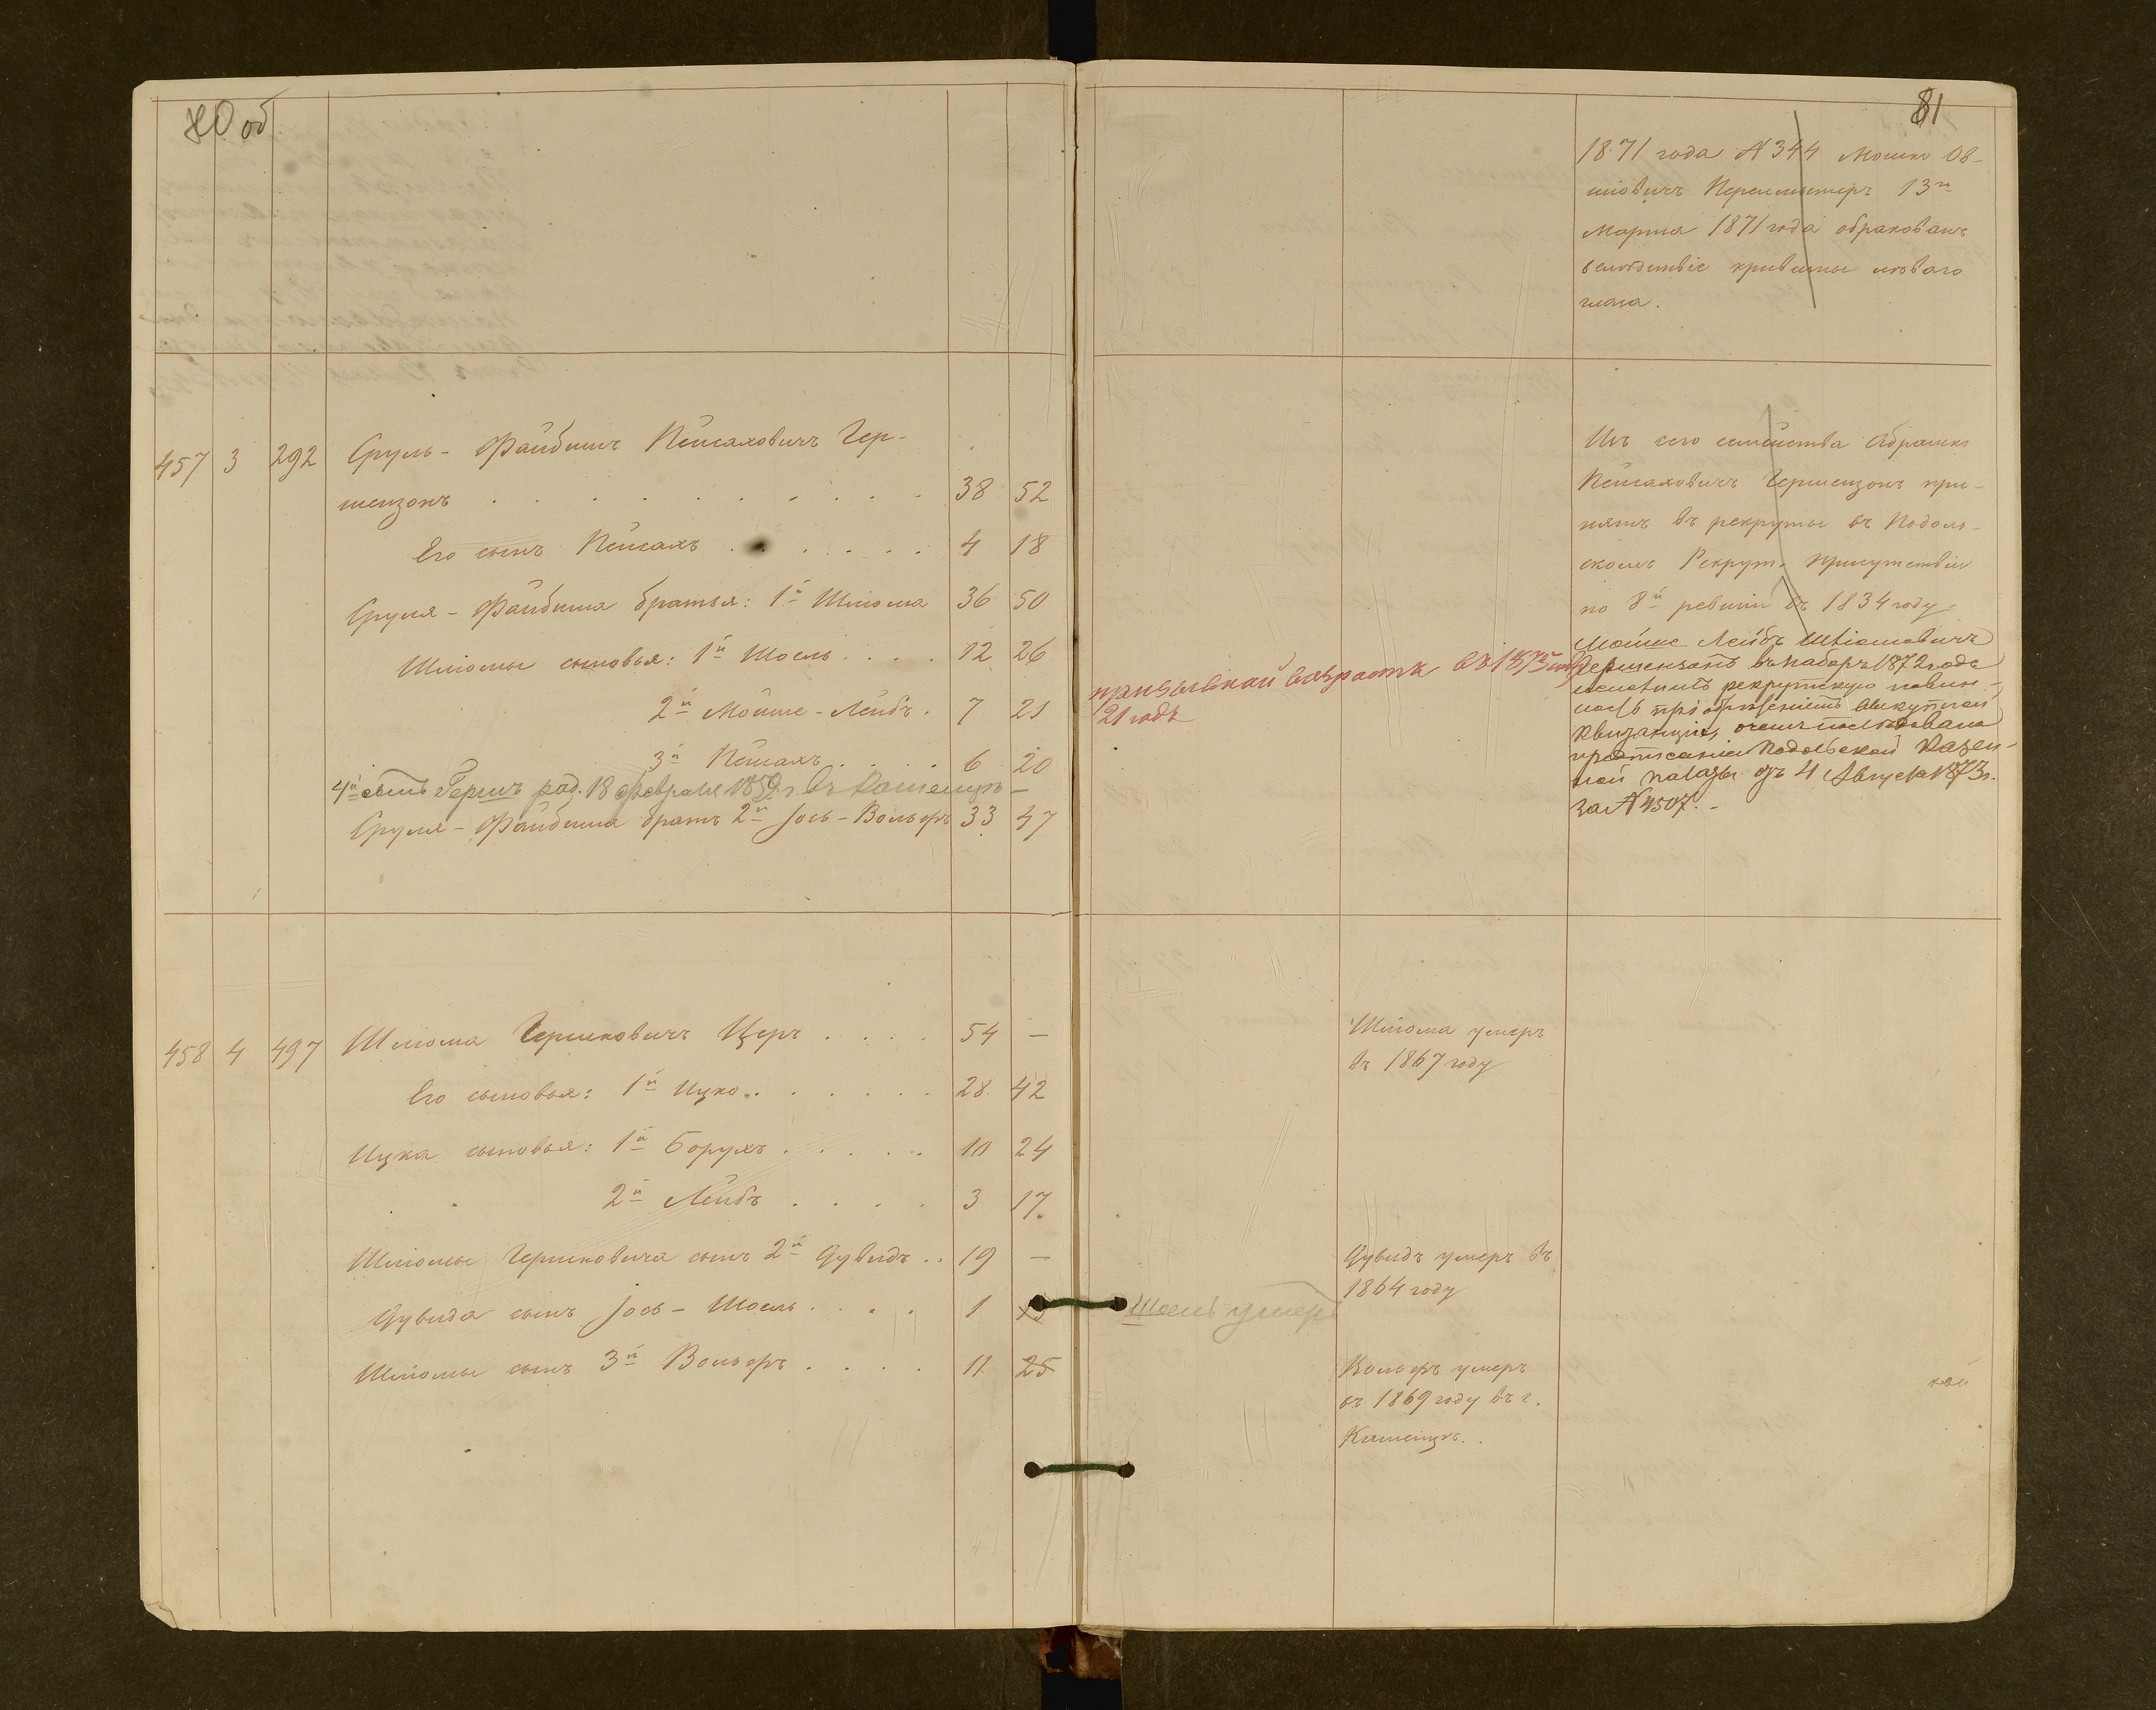 80 об
457 3 292 Сруль-Файвишъ Пейсаховичъ Гер-
шензонъ . . . . . . . . . 38 52
Его сынъ Пейсахъ . . . . . . 4 18
Сруля-Файвиша братья: 1й Шлиома 36 50
Шлиомы сыновья: 1й Шоель . . . . 12 26
2й Мойше-Лейбъ . 7 21
3й Пейсахъ . . . . 6 20
4й сынъ Гершъ род. 18 февраля 1859 г. въ Каменцѣ –
Сруля-Файвиша братъ 2й Іось-Вольфъ 33 47
458 4 497 Шлиома Гершковичъ Церъ . . . . 54 —
Его сыновья: 1й Ицко . . . . . . 28 42
Ицка сыновья: 1й Борухъ . . . . . 10 24
2й Лейбъ . . . . 3 17
Шлиомы Гершковича сынъ 2й Дувидъ . . 19 —
Дувида сынъ Іось-Шоель . . . . 1
Шлиомы сынъ 3й Вольфъ . . . . 11 25
81
1871 года № 344 Мошко Ов-
шіовичъ 13го
Марта 1871 года обракованъ
вслѣдствіе кривизны лѣваго
глаза.
Изъ сего семейства Абрамко
Пейсаховичъ Гершензонъ при-
нятъ въ рекруты въ Подоль-
скомъ Рекрут. Присутствіи
по 8й ревизіи въ 1834 году.
Мойше Лейбъ Шліомовичъ
Гершензонъ въ наборъ 1872 года
исполнилъ рекрутскую повин-
ность выкупной
квитанціи, о чемъ послѣдовало
предписаніе Подольской Казен-
ной палаты отъ 4 Августа 1873 г.
за № 4507. –
призывной возрастъ въ 1875 году
21 годъ
Шлиома умеръ
въ 1867 году
Дувидъ умеръ въ
1864 году
Шоель умеръ
Вольфъ умеръ
въ 1869 году въ г.
Каменцѣ.
кой